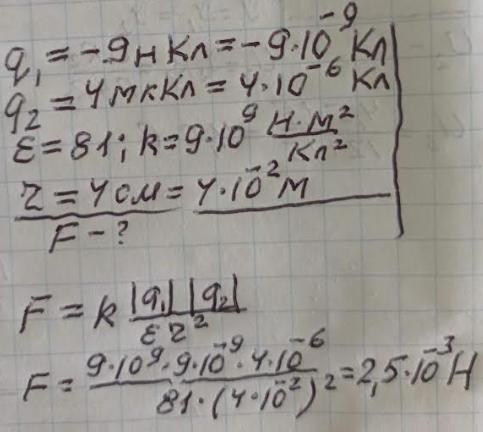 q₁ = -9нКл = -9·10⁻⁹ Кл
q₂ = 4мкКл = 4·10⁻⁶ Кл
ε = 81; k = 9·10⁹ Н·м²/Кл²
r = 4см = 4·10⁻² м
F - ?
F = k |q₁| |q₂| / εr²
F = 9·10⁹·9·10⁻⁹·4·10⁻⁶ / 81·(4·10⁻²)² = 2,5·10⁻³ Н